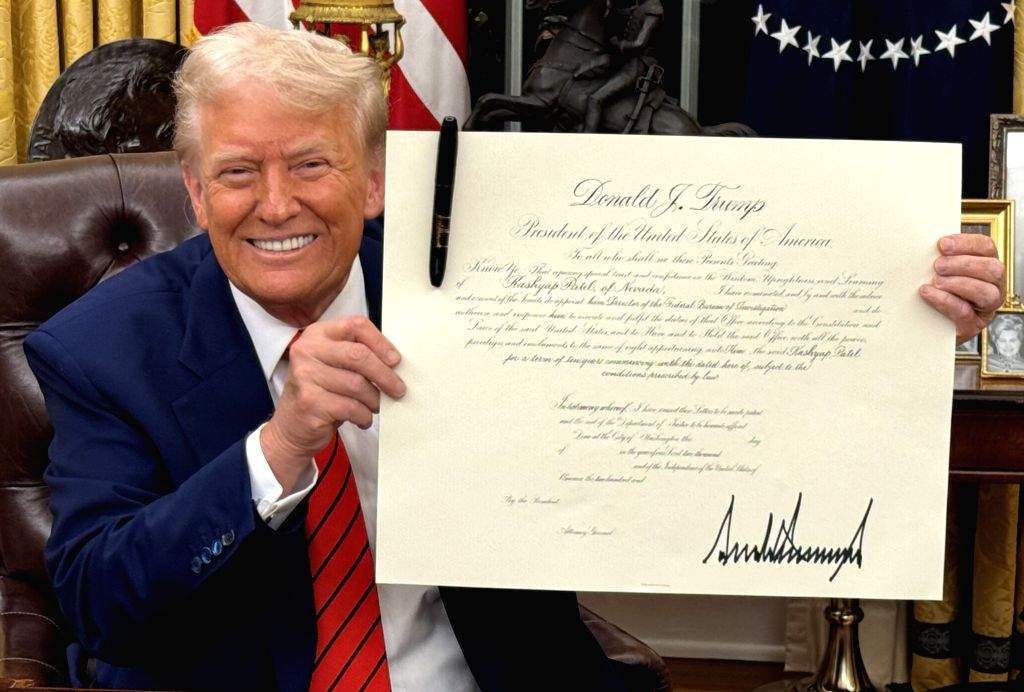 Donald J. Trump
President of the United States of America
To all who shall see these Presents Greeting
Know Ye, That reposing special trust and confidence in the Wisdom, Uprightness, and Learning
of Kashyap Patel, of Nevada, I have nominated, and, by and with the advice
and consent of the Senate do appoint him Director of the Federal Bureau of Investigation and do
authorize and empower him to execute and fulfil the duties of that Office according to the Constitution and
Laws of the said United States, and to Have and to Hold the said Office, with all the powers,
privileges and emoluments to the same of right appertaining, unto Him, the said Kashyap Patel
for a term of ten years commencing with the date hereof, subject to the
conditions prescribed by law
In testimony whereof, I have caused these Letters to be made patent
and the seal of the Department of Justice to be hereunto affixed
Done at the City of Washington this day
of in the year of our Lord two thousand
and of the Independence of the United States of
America the two hundred and
By the President
Attorney General